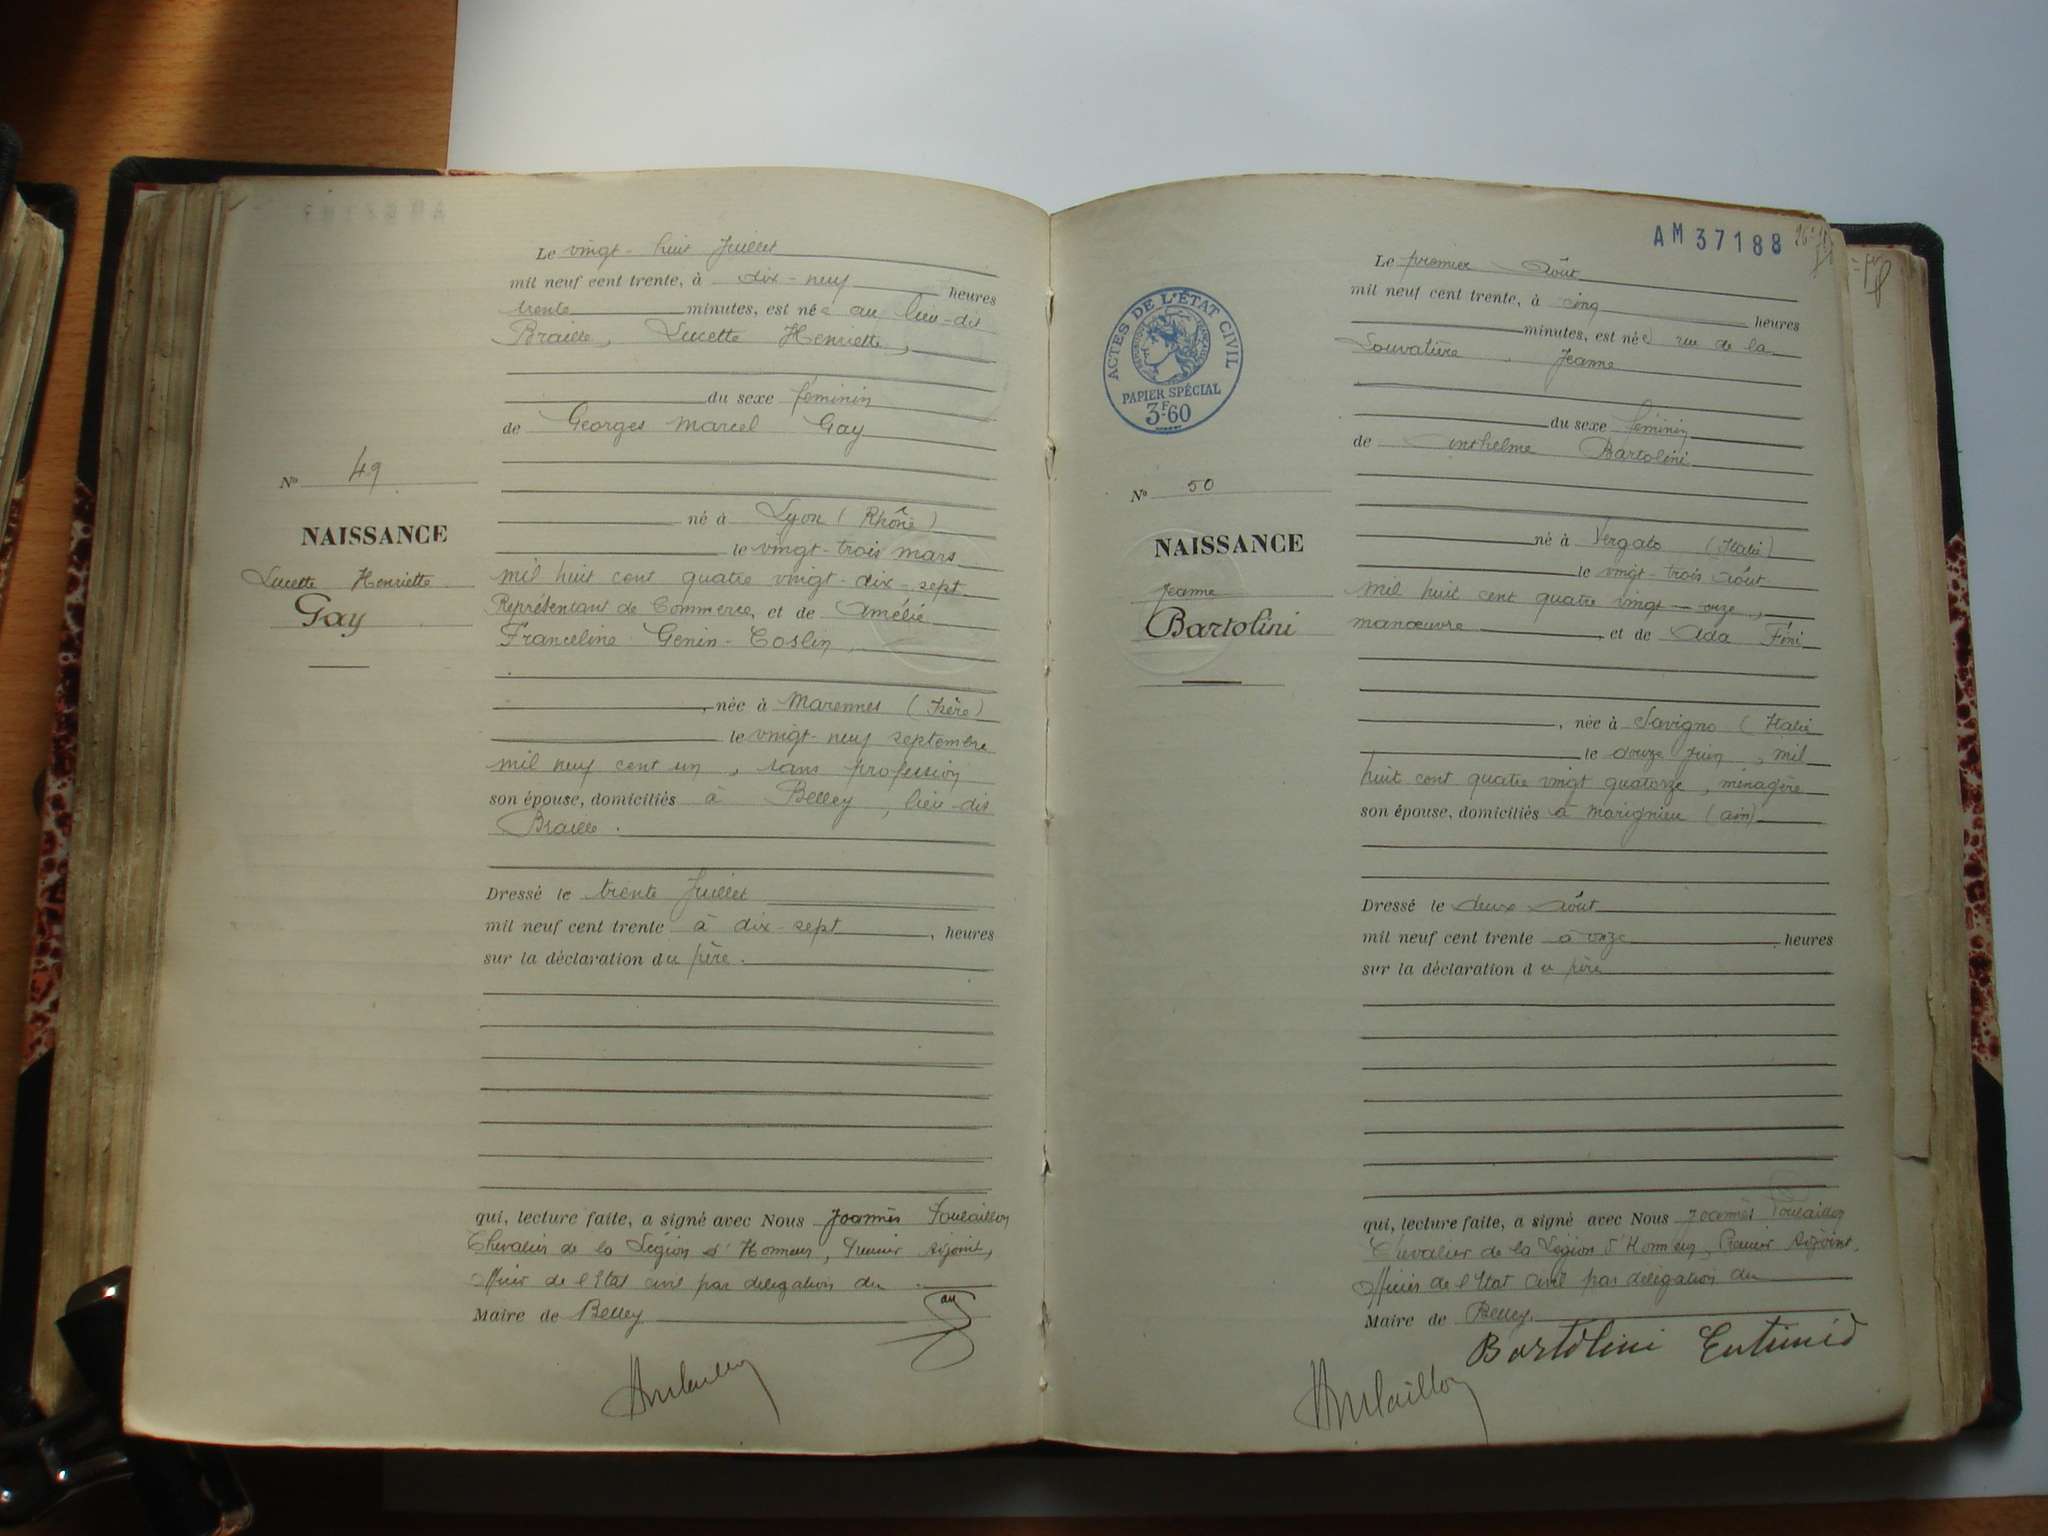 Le vingt-huit Juillet
mil neuf cent trente, à dix-neuf heures
trente minutes, est née au lieu-dit
Braille, Lucette Henriette,
du sexe féminin
de Georges Marcel Gay
N° 49
NAISSANCE
Lucette Henriette
Gay
né à Lyon (Rhône)
le vingt-trois mars
mil huit cent quatre vingt-dix-sept
Représentant de Commerce, et de Amélie
Franceline Genin-Coslin,
, née à Marennes (Isère)
le vingt-neuf septembre
mil neuf cent un, sans profession
son épouse, domiciliés à Belley, lieu-dit
Braille.
Dressé le trente Juillet
mil neuf cent trente à dix-sept, heures
sur la déclaration du père.
qui, lecture faite, a signé avec Nous Joannès Foulaillon
Chevalier de la Légion d'Honneur, Premier Adjoint,
Officier de l'Etat civil par délégation du
Maire de Belley
AM 37188
ACTES DE L'ÉTAT CIVIL
PAPIER SPÉCIAL
3F60
Le premier Août
mil neuf cent trente, à cinq heures
minutes, est née rue de la
Louvatière, Jeanne
du sexe féminin
de Anthelme Bartolini
N° 50
NAISSANCE
Jeanne
Bartolini
né à Vergato (Italie)
le vingt-trois Août
mil huit cent quatre vingt-onze,
manœuvre, et de Ada Fini
, née à Savigno (Italie
le douze Juin, mil
huit cent quatre vingt quatorze, ménagère
son épouse, domiciliés à Marignieu (Ain)
Dressé le deux Août
mil neuf cent trente à onze, heures
sur la déclaration du père
qui, lecture faite, a signé avec Nous Joannès Foulaillon
Chevalier de la Légion d'Honneur, Premier Adjoint,
Officier de l'Etat Civil par délégation du
Maire de Belley.
Bartolini